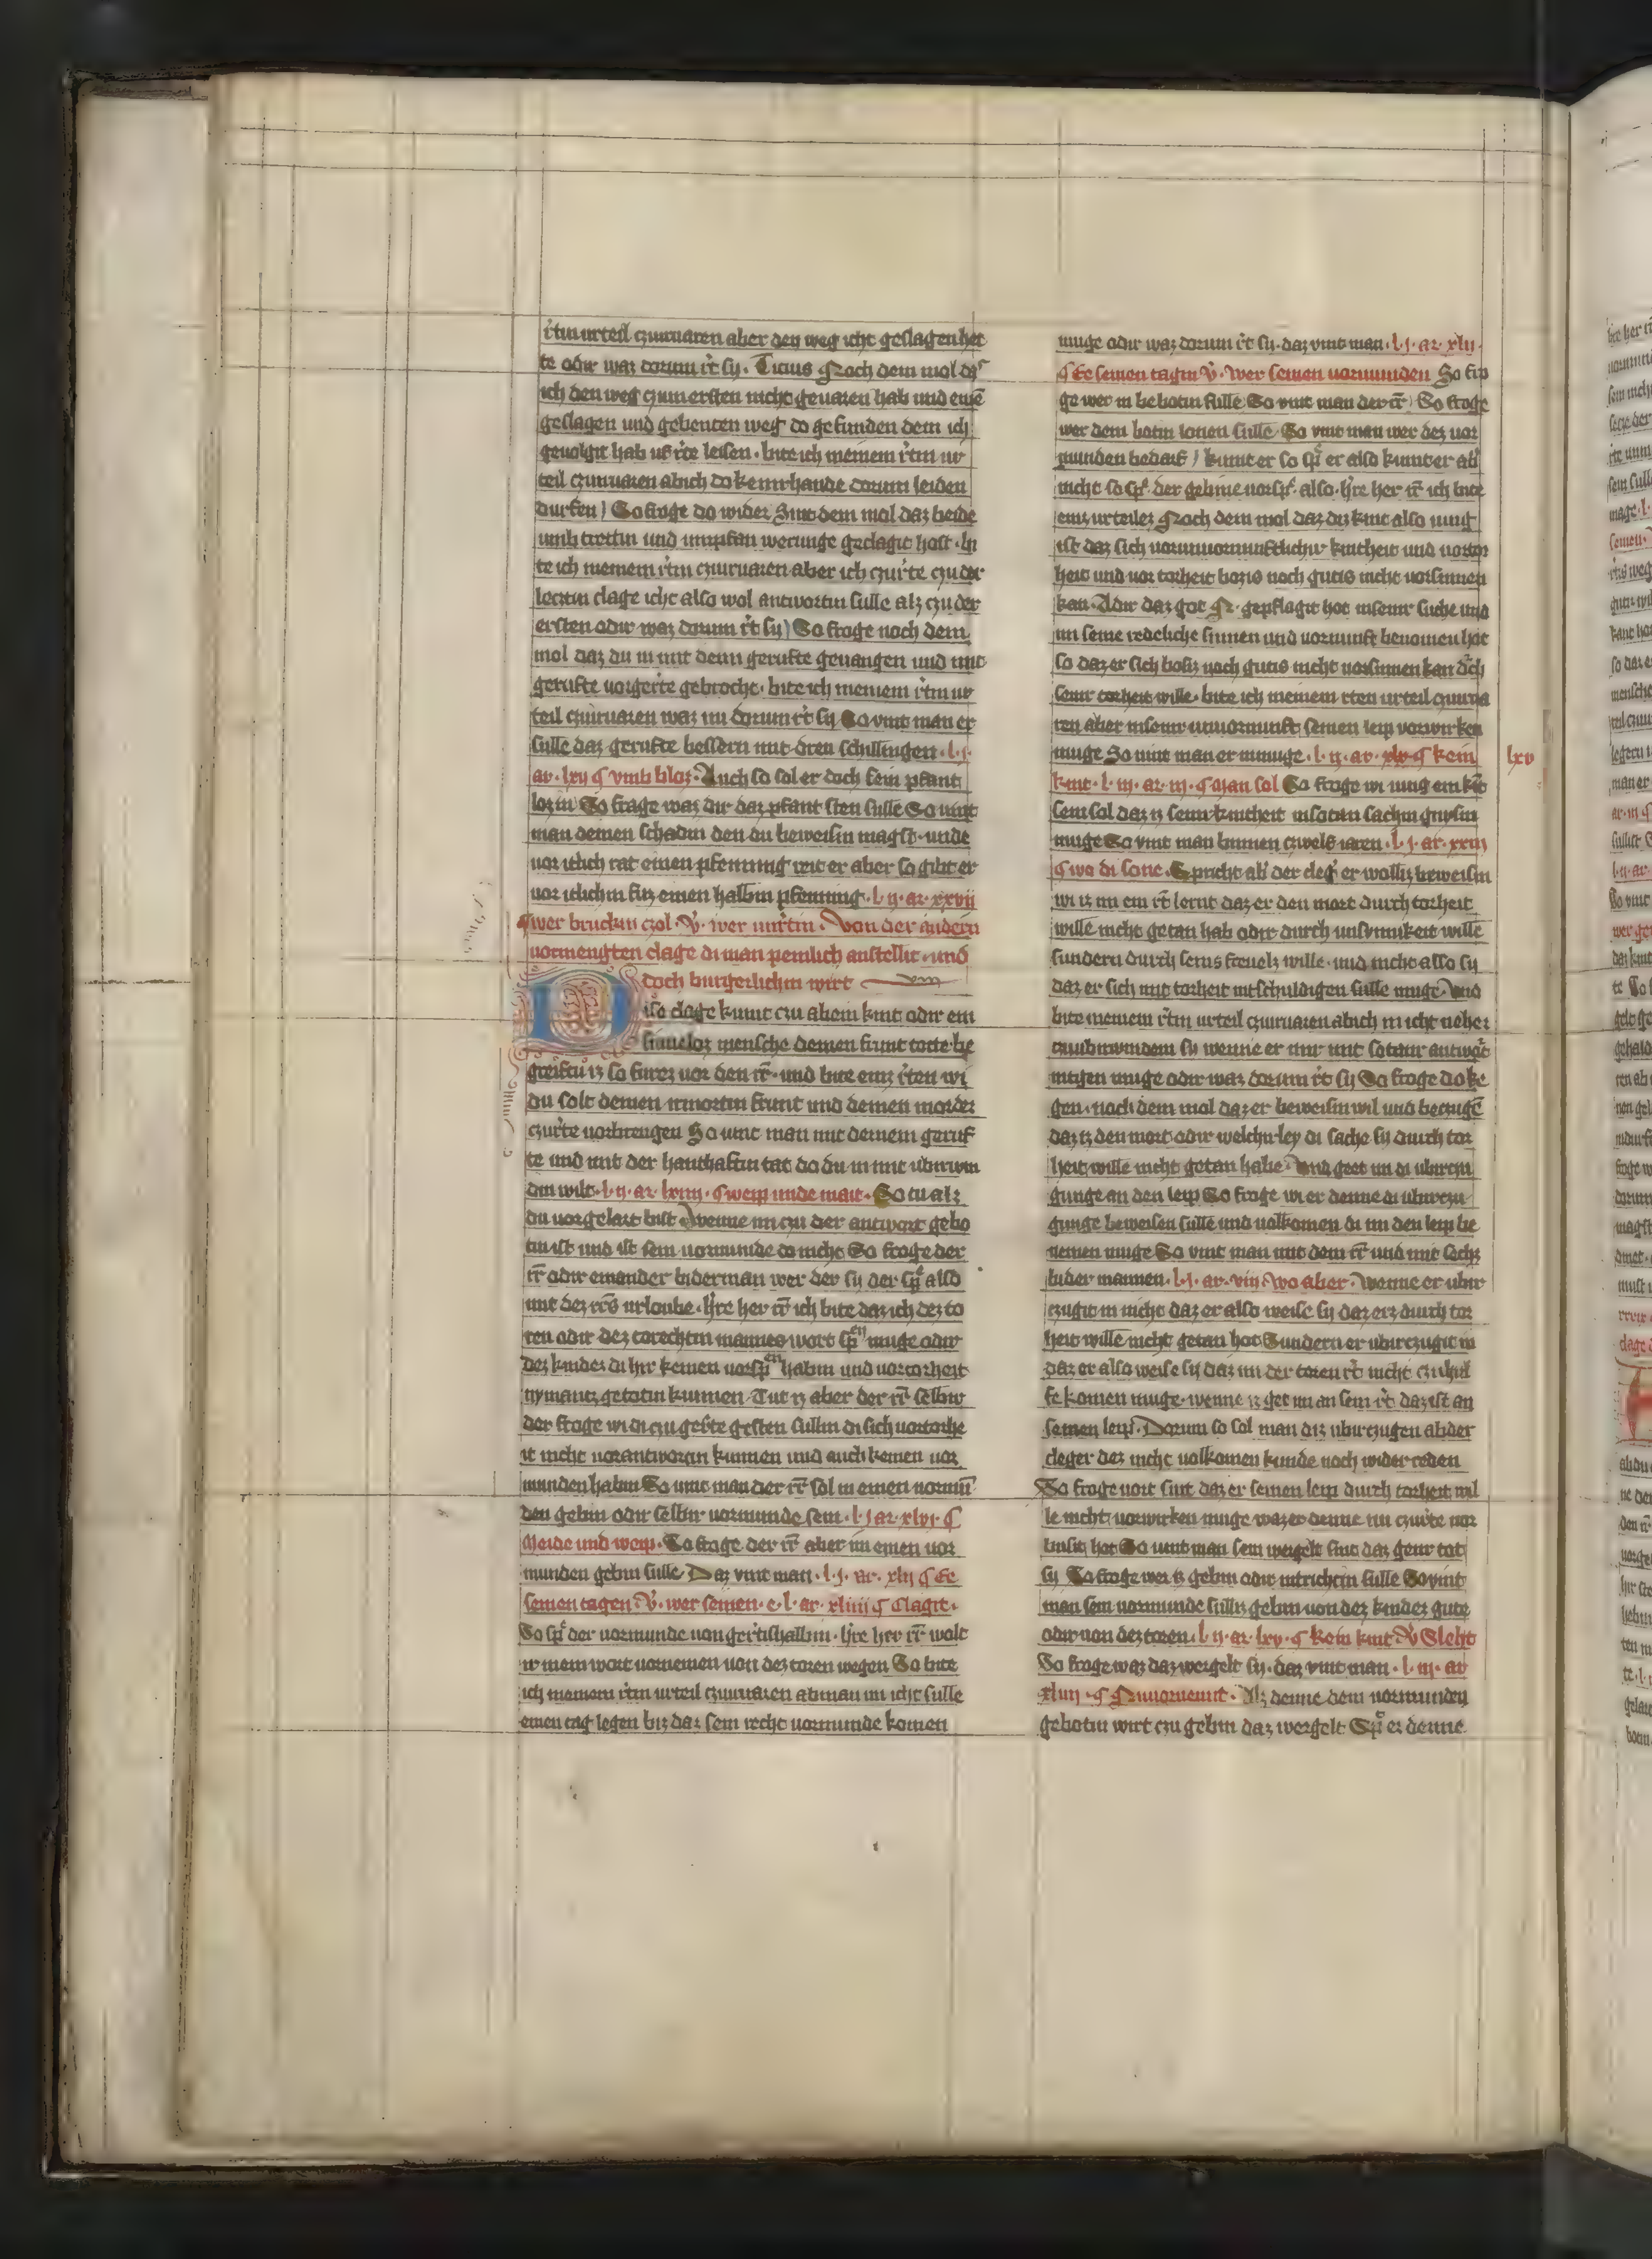 r̄tin urteil czuuruaren aber den weg icht geslagen het
te odir waz dorum r̄t sy. Ticius Noch dem mol dz
ich den weg czum ersten nicht geuaren hab und eine
geslagen und gebenten weg do gefunden dem ich
geuolgit hab uf r̄te leisen. bite ich meinem r̄tin ur
teil czuuruaren abich do keinrhande dorum leiden
durfen) So froge do wider Sint dem mol daz beide
umb trettin und umpfan werunge geclagit host. bi
te ich meinem r̄tin czuuruaren aber ich czur̄te czu der
leczin clage icht also wol antwortin sulle alz czu der
ersten odir waz dorum r̄t sy) So froge noch dem
mol daz du in mit deim gerufte geuangen und mit
gerufte uorger̄te gebrocht. bite ich meinem r̄tin ur
teil czuuruaren waz im dorum r̄t sy So vint man er
sulle daz gerufte bessern mit dren schillingen. l. j.
ar. lxij ¶ vmb bloz. Auch so sol er doch sein pfant
lozin So frage waz dir daz pfant sten sulle So vint
man deinen schadin den du beweisin magst. unde
uor itlich rat einen pfenning reit er aber so gibt er
uor itlichin fuz einen halbin pfenning. l. ij. ar. xxvij
¶ wer bruckin czol. V̊. wer unr̄tin. Von der andern
uormengten clage di man peinlich anstellit. und
doch burgerlichin wirt viij
Iso clage kumt czu abein kint odir ein
sinneloz mensche deinen frunt totte be
greifstu iz so furez uor den r̄r. und bite einz r̄ten wi
du solt deinen irmortin frunt und deinen morder
czur̄te uorbrengen So vint man mit deinem geruf
te und mit der hanthaftin tat do du in mit ubirwin
din wilt. l. ij. ar. lxiiij. ¶ weip unde mait. So tu alz
du uorgelart bist Wenne im czu der antwort gebo
tin ist und ist sein uormunde do nicht So froge der
r̄r odir einander biderman wer der sy der sp̄ also
mit dez r̄r̄s urloube. h̄re her r̄r ich bite daz ich dez to
ren odir dez torechtin mannes wort sp̄en muge odir
dez kindez di hir keinen uorsp̄en habin und uor torheit
nymantz getotin kunnen. Tut iz aber der r̄r selbir
der froge wi di czu geste gesten sullin di sich uortorhe
it nicht uorantwortin kunnen und auch keinen uor
munden habin So vint man der r̄r sol in einen uormū
den gebin odir selbir uormunde sein. l. j ar. xlvj. ¶
Meide und weip. So froge der r̄r aber im einen uor
munden gebin sulle Daz vint man. l. j. ar. xlij ¶ Ee
seinen tagen. V̊. wer seinen. e. l. ar. xliiij ¶ Clagit.
So sp̄ der uormunde uon ger̄tishalbin. h̄re her r̄r wolt
ir mein wort uornemen uon dez toren wegen So bite
ich meinem r̄tin urteil czuuruaren abman im icht sulle
einen tag legen biz daz sein recht uormunde komen
muge odir waz dorum r̄t sy. daz vint man. l. j. ar. xlij.
¶ Ee seinen tagin V̊. wer seinen uormunden So fro
ge wer in be botin sulle So vint man der r̄r) So froge
wer dem botin lonen sulle So vint man wer dez uor
munden bedarf) kumt er so sp̄ er also kumt er ab̄
nicht so sp̄. der gebine uorsp̄. also. h̄re her r̄r ich bite
einz urteilez Noch dem mol daz diz kint also iung
ist daz sich uorunuornunftlichir kintheit und uortor
heit und uor torheit bozis noch gutis nicht uorsinnen
kan. Adir daz got N. gepflagit hot inseinr suche und
im seine redeliche sinnen und uornunft benomen hot
so daz er sich bosiz noch gutis nicht uorsinnen kan dch
seinr torheit wille. bite ich meinem rten urteil czuurua
ren aber inseinr unuornunft seinen leip vorwirken
muge So vint man er inmuge. l. ij. ar. xlv ¶ kein
lxv
kint. l. iij. ar. iij. ¶ Man sol So froge wi iung ein kīt
sein sol daz iz seinr kintheit insotan sachin gnysin
muge So vint man binnen czwelf iaren. l. j. ar. xxiij
¶ wo di sone. Spricht ab̄ der cleḡ er wolliz beweisin
wi iz im ein r̄t lernt daz er den mort durch torheit
wille nicht getan hab odir durch unsynnikeit wille
sundern durch seins freuelz wille. und nicht also sy
daz er sich mit torheit intschuldigen sulle muge. Und
bite meinem r̄tin urteil czuuruaren abich in icht neher
czuubirwindenn sy wenne er mir mit sotanr antwort
intgen muge odir waz dorum r̄t sy So froge do ke
gen. noch dem mol daz er beweisin wil und beczugē
daz iz den mort odir welchirley di sache sy durch tor
heit wille nicht getan habe. Und geet im di ubirczu
gunge an den leip So froge wi er denne di ubirczu
gunge beweisen sulle und uolkomen di im den leip be
nemen muge So vint man mit dem r̄r und mit sechz
bider mannen. l. j. ar. viij. wo aber. Wenne er ubir
czugit in nicht daz er also weise sy daz erz durch tor
heit wille nicht getan hot Sundern er ubirczugit in
daz er also weise sy daz im der toren r̄t nicht czuhul
fe komen muge. wenne iz get im an sein r̄t daz ist an
seinen leip. Dorum so sol man diz ubirczugen abder
cleger dez nicht uolkomen kunde noch wider reden
So froge uort sint daz er seinen leip durch torheit wil
le nicht uorwirken muge waz er denne im czur̄te uor
busit hot So vint man sein wergelt sint daz genr tot
sy So froge wer iz gebin odir intrichtin sulle So vint
man sein uormunde sulliz gebin uon dez kindez gute
odir uon dez toren. l. ij. ar. lxv. ¶ kein kint V̊ Sleht
So froge waz daz wergelt sy. daz vint man. l. iij. ar
xliiij. ¶ Nu uornemit. Alz denne dem uormunden
gebotin wirt czu gebin daz wergelt Sp̄ er denne